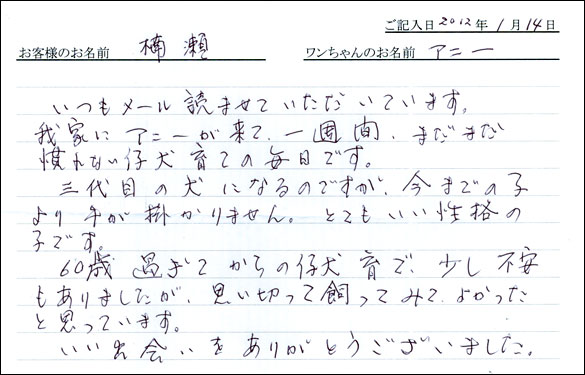 ご記入日 2012年 1月 14日
お客様のお名前 楠瀬 ワンちゃんのお名前 アニー
いつもメール読ませていただいています。
我家にアニーが来て、一週間、まだまだ
慣れない仔犬育ての毎日です。
三代目の犬になるのですが、今までの子
より手が掛かりません。とてもいい性格の
子です。
60歳過ぎてからの仔犬育で、少し不安
もありましたが、思い切って飼ってみて、よかった
と思っています。
いい出会いをありがとうございました。